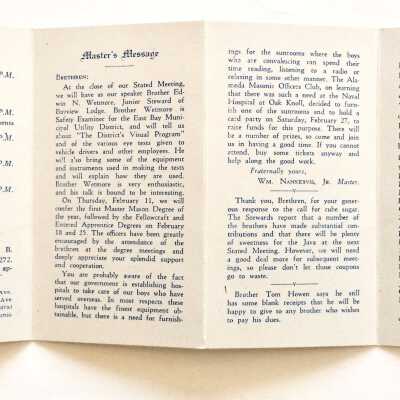 P.M.
P.M.
P.M.
P.M.
P.M.
B.
272.
ap-
Ave.
Ave
Master's Message
BRETHREN:
At the close of our Stated Meeting,
we will have as our speaker Brother Ed-
win N. Wetmore, Junior Steward of
Bayview Lodge. Brother Wetmore is
Safety Examiner for the East Bay Muni-
cipal Utility District, and will tell us
about "The District's Visual Program"
and of the various eye tests given to
vehicle drivers and other employees. He
will also bring some of the equipment
and instruments used in making the tests
and will explain how they are used.
Brother Wetmore is very enthusiastic,
and his talk is bound to be interesting.
On Thursday, February 11, we will
confer the first Master Mason Degree of
the year, followed by the Fellowcraft and
Entered Apprentice Degrees on February
18 and 25. The officers have been greatly
encouraged by the attendance of the
brethren at the degree meetings and
deeply appreciate your splendid support
and cooperation.
You are probably aware of the fact
that our government is establishing hos-
pitals to take care of our boys who have
served overseas. In most respects these
hospitals have the finest equipment ob-
tainable, but there is a need for furnish-
ings for the sunrooms where the boys
who are convalescing can spend their
time reading, listening to a radio or
relaxing in some other manner. The Ala-
meda Masonic Officers Club, on learning
that there was such a need at the Naval
Hospital at Oak Knoll, decided to furn-
ish one of the sunrooms and to hold a
card party on Saturday, February 27, to
raise funds for this purpose. There will
be a number of prizes, so come and join
us in having a good time. If you cannot
attend, buy some tickets anyway and
help along the good work.
Fraternally yours,
WM. NANKERVIS, JR. Master.
Thank you, Brethren, for your gener-
ous response to the call for cube sugar.
The Stewards report that a number of
the brothers have made substantial con-
tributions and that there will be plenty
of sweetness for the Java at the next
Stated Meeting. However, we will need
a good deal more for subsequent meet-
ings, so please don't let those coupons
go to waste.
Brother Tom Howen says he still
has some blank receipts that he will be
happy to give to any brother who wishes
to pay his dues.